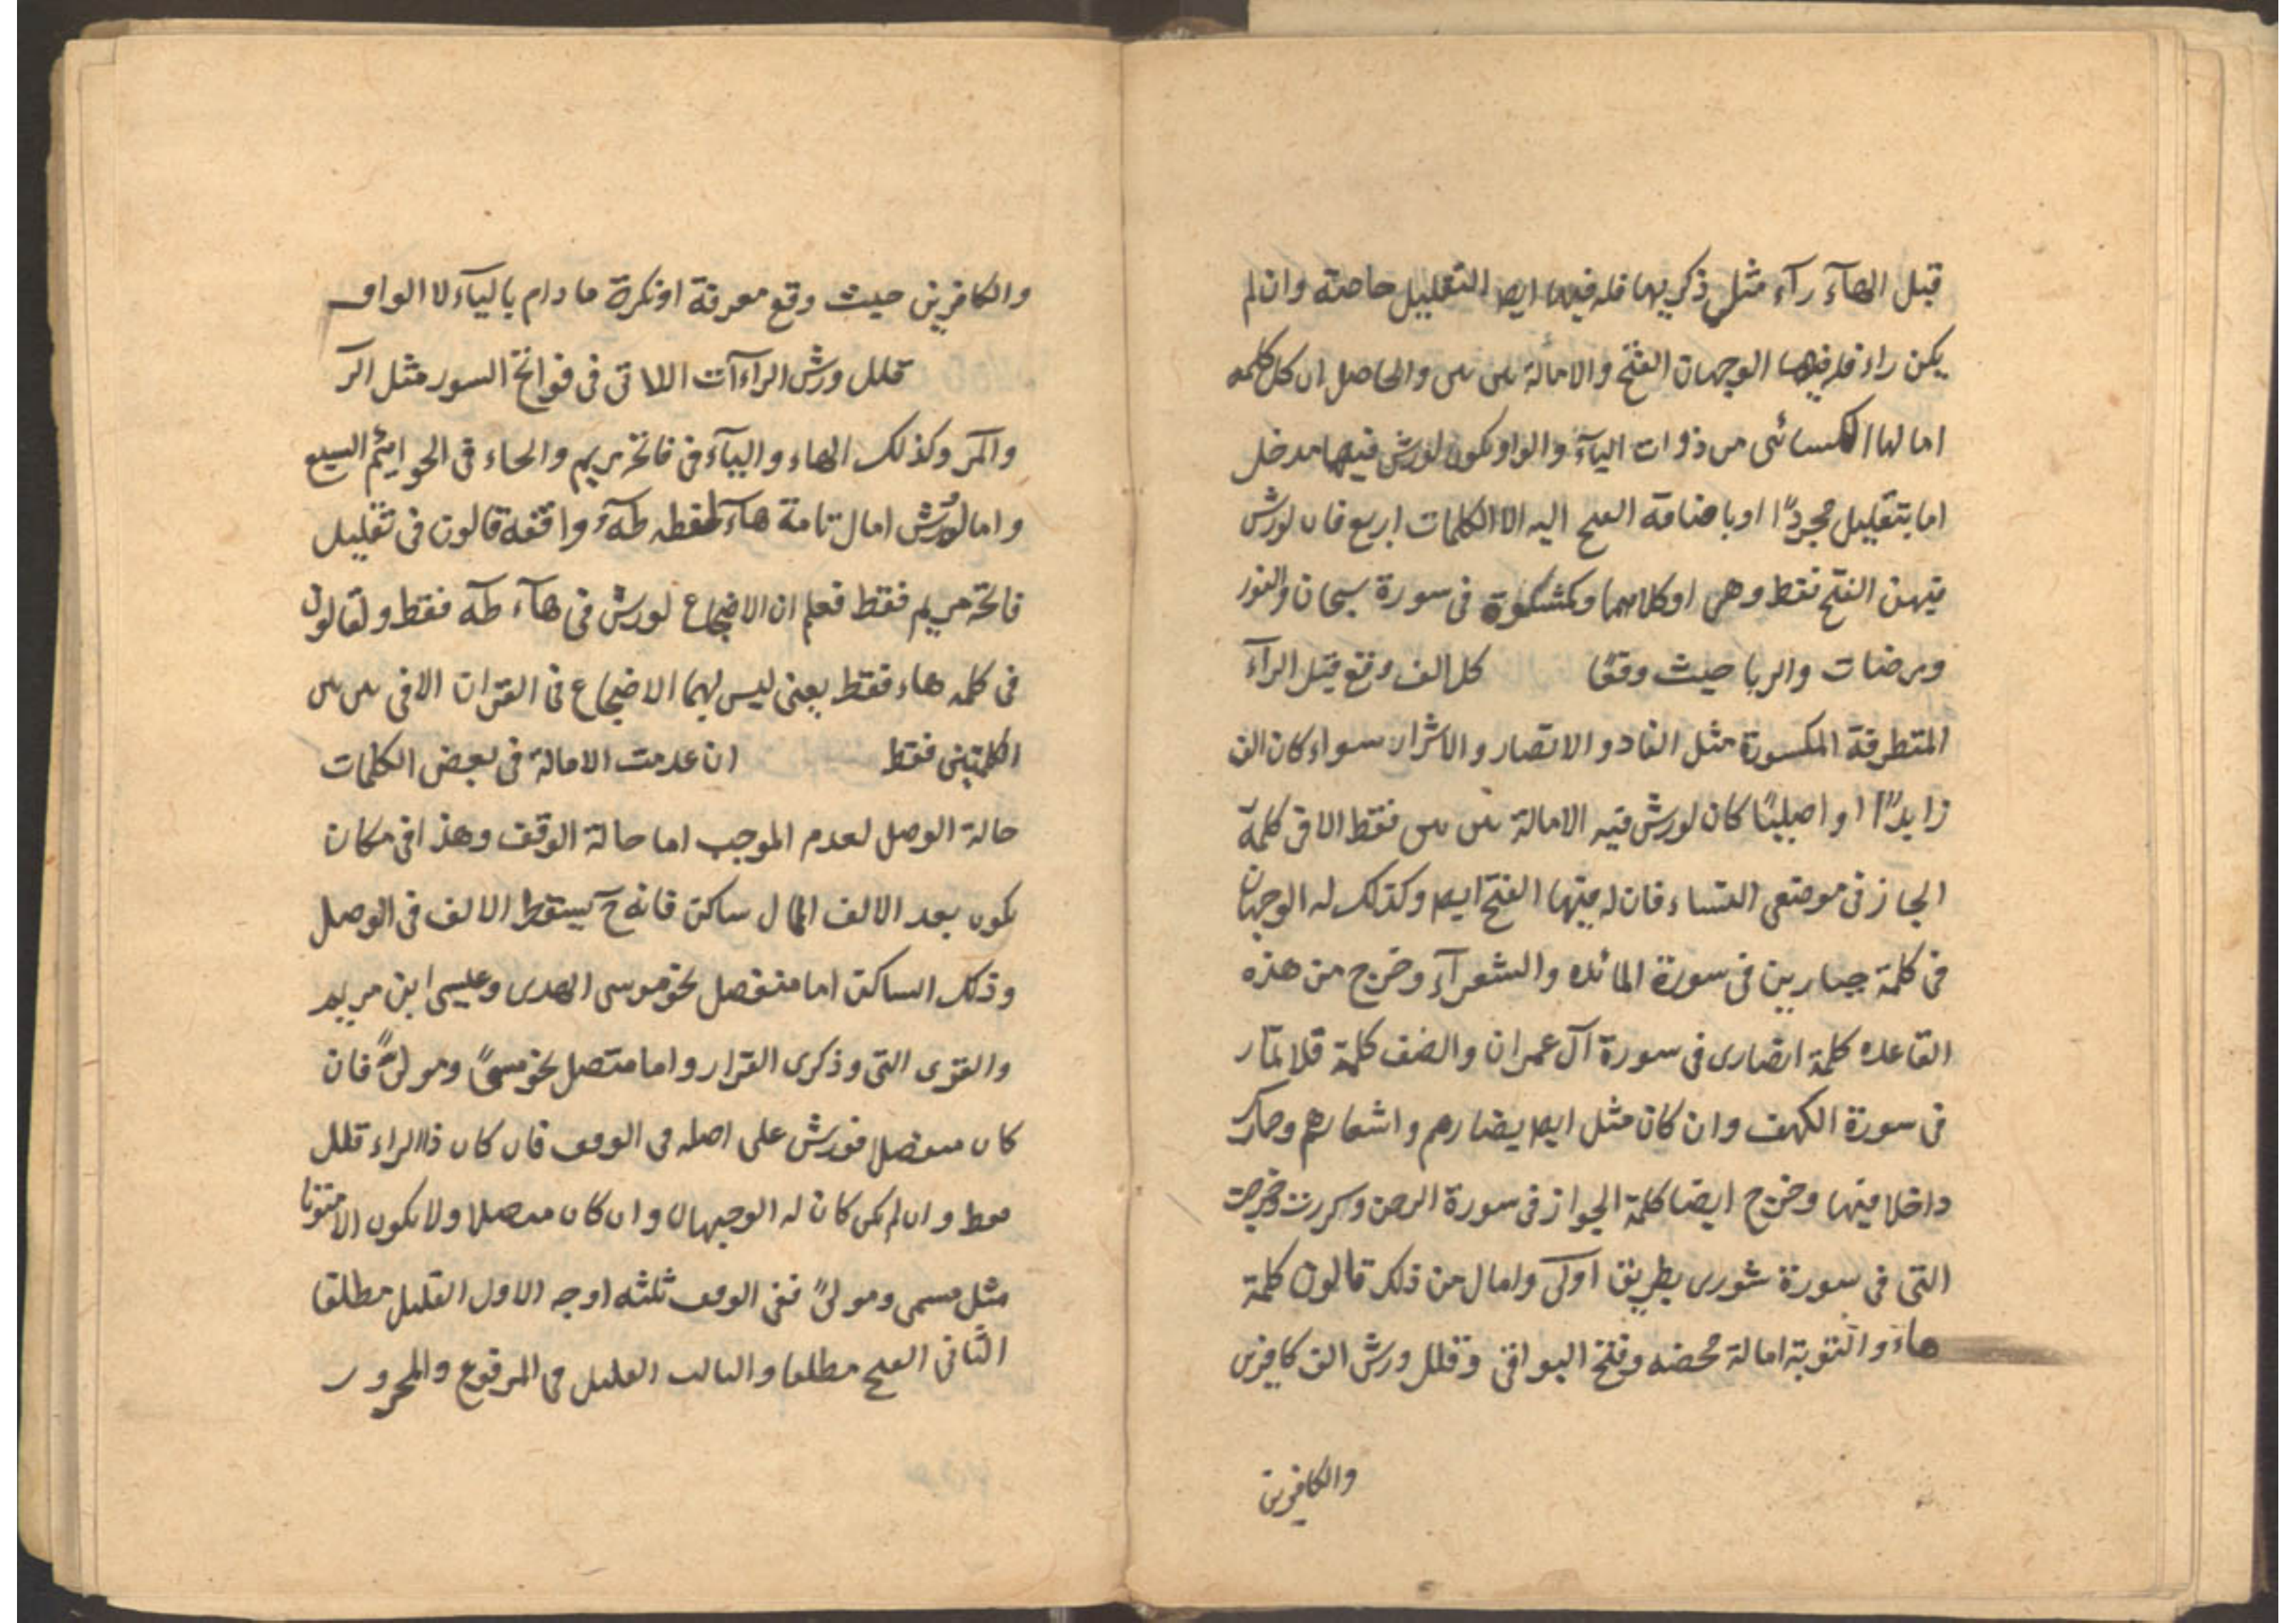 قبل الهآء رآء مثل ذكريها فله فيها ايضا التقليل خاصة وان لم
يكن راء فله فيها الوجهان الفتح والامالة بين بين والحاصل ان كل كلمه
امالها الكسائى من ذوات اليآء والواو يكون لورش فيها مدخل
اما بتقليل مجردًا او باضافة الفتح اليه الا الكلمات اربع فان لورش
فيهن الفتح فقط وهى اوكلاهما وكمشكوة فى سورة سبحان والنور
ومرضات والربا حيث وقعا كل الف وقع قبل الرآء
المتطرفة المكسورة مثل الفاد و الاتصار والاشرار سواء كان الف
زايدًا او اصليًا كان لورش فيه الامالة بين بين فقط الا فى كلمة
الجاز فى موضعى النساء فان له فيها الفتح ايضا وكذلك له الوجهان
فى كلمة جبارين فى سورة المائده والشعرآء وخرج من هذه
القاعده كلمة انصارى فى سورة آل عمران والصف كلمة فلا تمار
فى سورة الكهف وان كان مثل ايضا يضارهم واشعارهم وحمارك
داخلا فيها وخرج ايضا كلمة الجواز فى سورة الرحمن وكررت وخرجت
التى فى سورة شورى بطريق اولى وامال من ذلك قالون كلمة
هاءَ و التوبة امالة محضه وفتح البواقى وقلل ورش الف كافرين
والكافرين
والكافرين حيث وقع معرفة او نكرة ما دام باليآء لا الواو
قلل ورش الراءآت اللاتى فى فواتح السور مثل الر
والمر وكذلك الهاء واليآء فى فاتحة مريم والحاء فى الحواميم السبع
واما لورش امال تامة هآء لفظه طه ووافقه قالون فى تقليل
فاتحة مريم فقط فعلم ان الاضجاع لورش فى هآء طه فقط ولقالون
فى كلمه هاء فقط يعنى ليس لهما الاضجاع فى القران الا فى بين بين
الكلمتين فقط ان عدمت الامالة فى بعض الكلمات
حالة الوصل لعدم الموجب اما حالة الوقف وهذا فى مكان
يكون بعد الالف الممال ساكن فانه ح يسقط الالف فى الوصل
وذلك الساكن اما منفصل نحو موسى الهدى وعيسى ابن مريم
والقرى التى وذكرى القرار واما متصل نحو مسمًى ومولىً فان
كان منفصل فورش على اصله فى الوقف فان كان ذا الراء قلل
فقط وان لم يكن كان له الوجهان وان كان متصلا ولا يكون الا منونا
مثل مسمى ومولىً ففى الوقف ثلثه اوجه الاول القليل مطلقا
الثانى الفتح مطلقا والثالث القليل فى المرفوع والمجرور